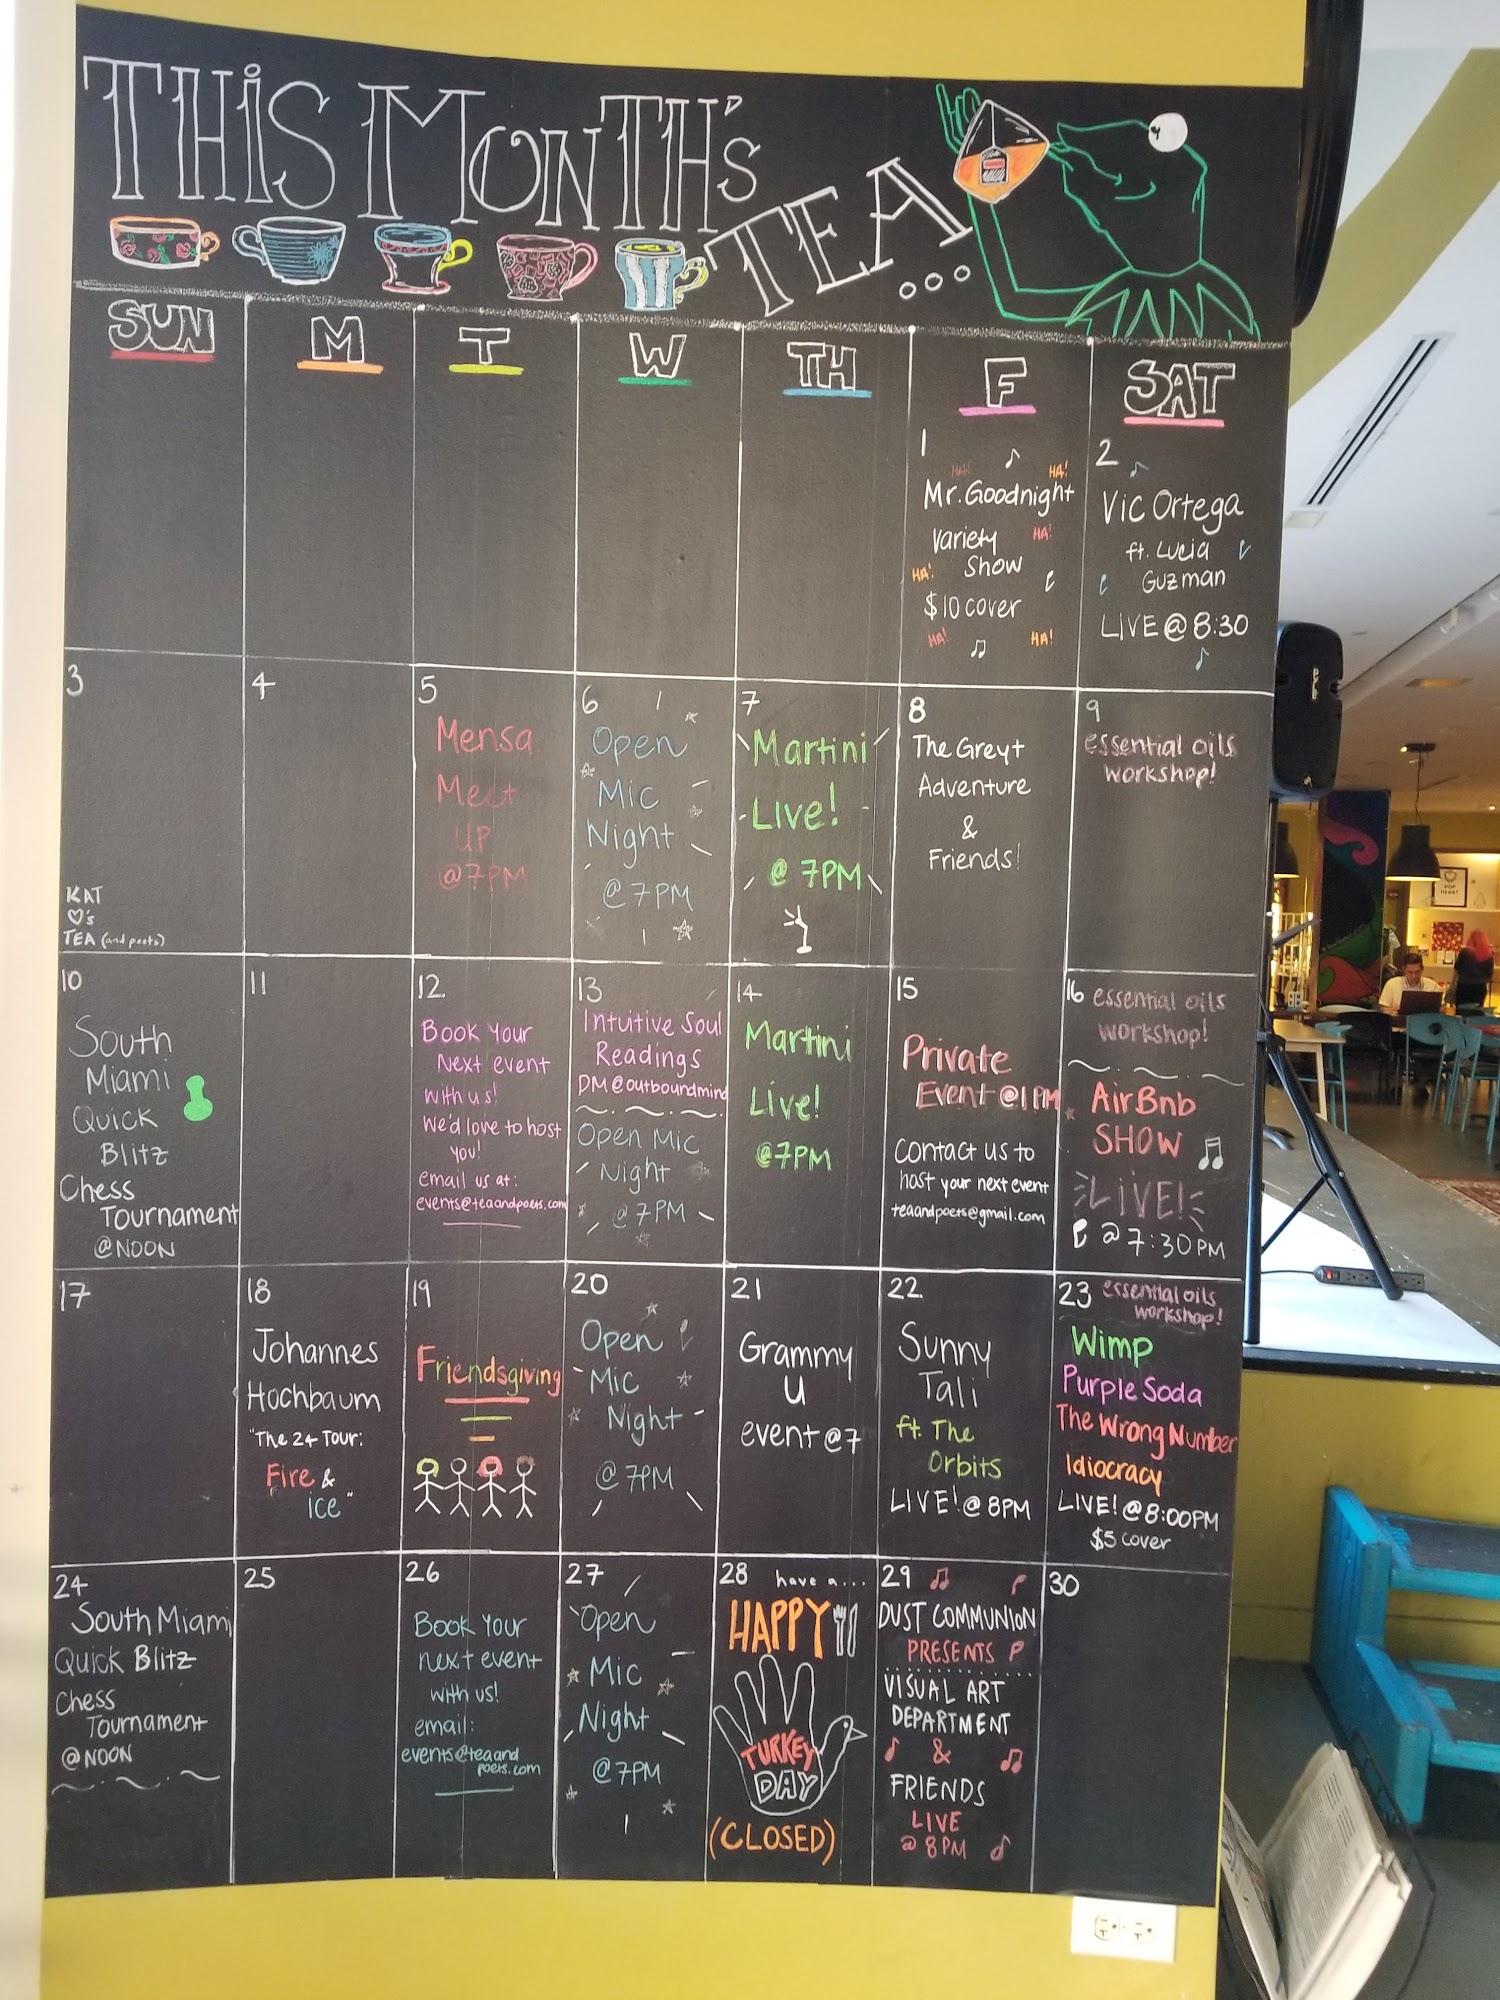 THIS MONTH'S
TEA...
SUN
M
T
W
TH
F
SAT
1
HA!
HA!
Mr. Goodnight
Variety
HA!
HA!
Show
$10 cover
HA!
HA!
2
Vic Ortega
ft. Lucia
Guzman
LIVE @ 8:30
3
KAT
♡'s
TEA (and poets)
4
5
Mensa
Meet
UP
@7PM
6
Open
Mic
Night
@ 7PM
7
Martini
Live!
@ 7PM
8
The Greyt
Adventure
&
Friends!
9
essential oils
workshop!
10
South
Miami
Quick
Blitz
Chess
Tournament
@NOON
11
12
Book Your
Next event
with us!
We'd love to host
you!
email us at:
events@teaandpoets.com
13
Intuitive Soul
Readings
DM @outboundmind
Open Mic
Night
@ 7PM
14
Martini
Live!
@7PM
15
Private
Event @1PM
Contact us to
host your next event
teaandpoets@gmail.com
16 essential oils
workshop!
AirBnb
SHOW
LiVE!
@ 7:30PM
17
18
Johannes
Hochbaum
"The 24 Tour:
Fire &
ice"
19
Friendsgiving
20
Open
Mic
Night
@ 7PM
21
Grammy
U
event @7
22
Sunny
Tali
ft. The
Orbits
LIVE! @ 8PM
23 essential oils
workshop!
Wimp
Purple Soda
The Wrong Number
Idiocracy
LIVE! @8:00PM
$5 cover
24
South Miami
Quick Blitz
Chess
Tournament
@NOON
25
26
Book Your
next event
with us!
email:
events@teaand
poets.com
27
Open
Mic
Night
@7PM
28 have a...
HAPPY
TURKEY
DAY
(CLOSED)
29
DUST COMMUNION
PRESENTS
VISUAL ART
DEPARTMENT
&
FRIENDS
LIVE
@ 8PM
30